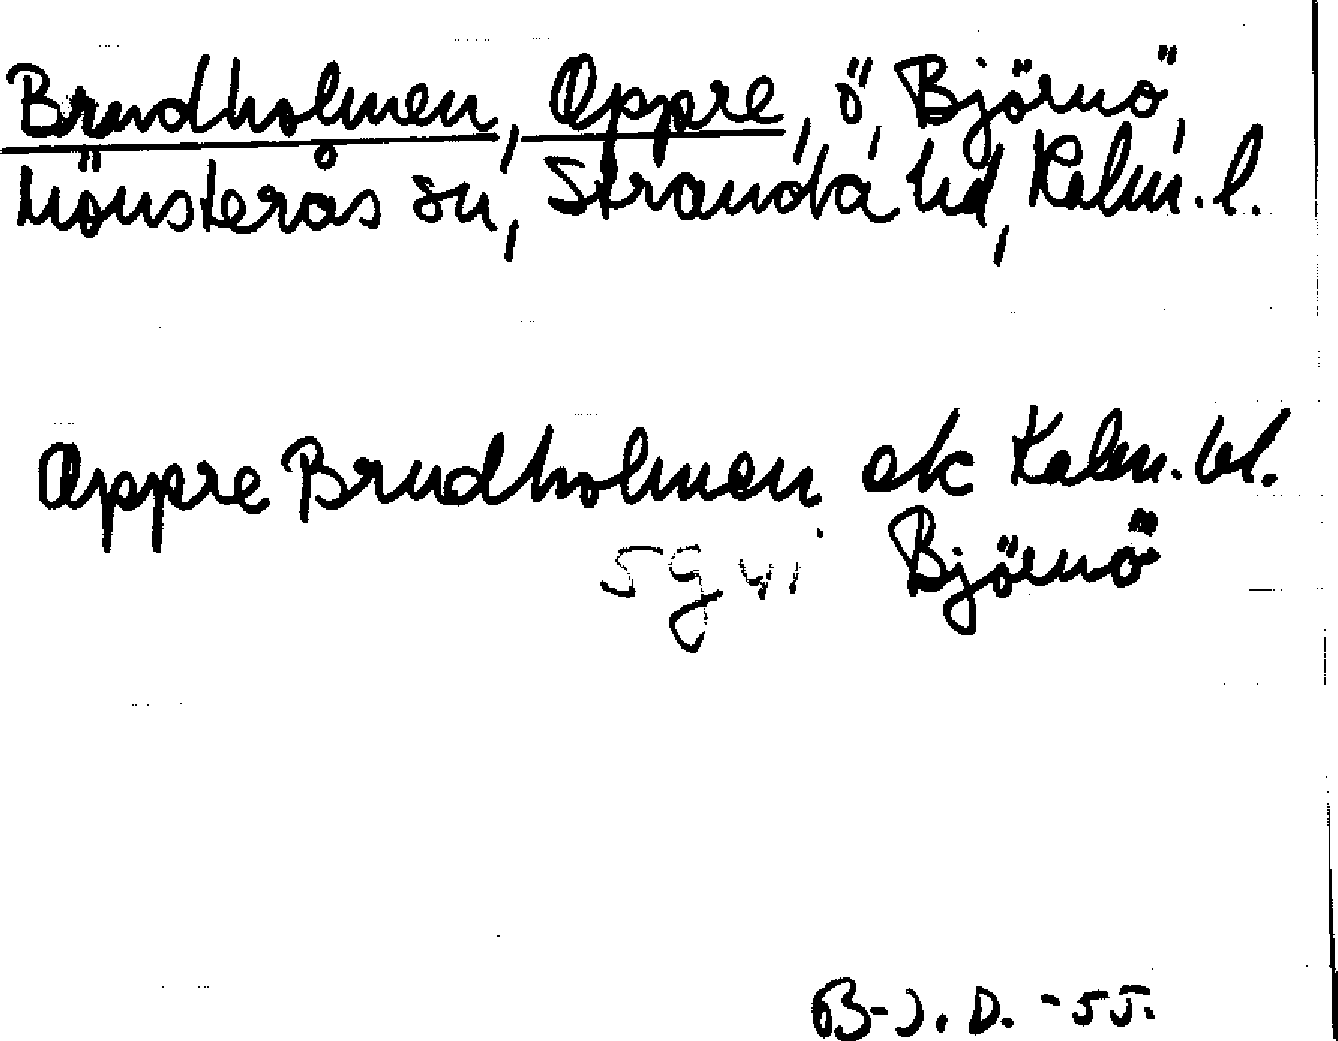 Brudholmen, Oppre, ö, Björnö,
Mönsterås sn, Stranda hd, Kalm. l.
Oppre Brudholmen ek Kalm. bl.
5g vi Björnö
B-J. D. -55.